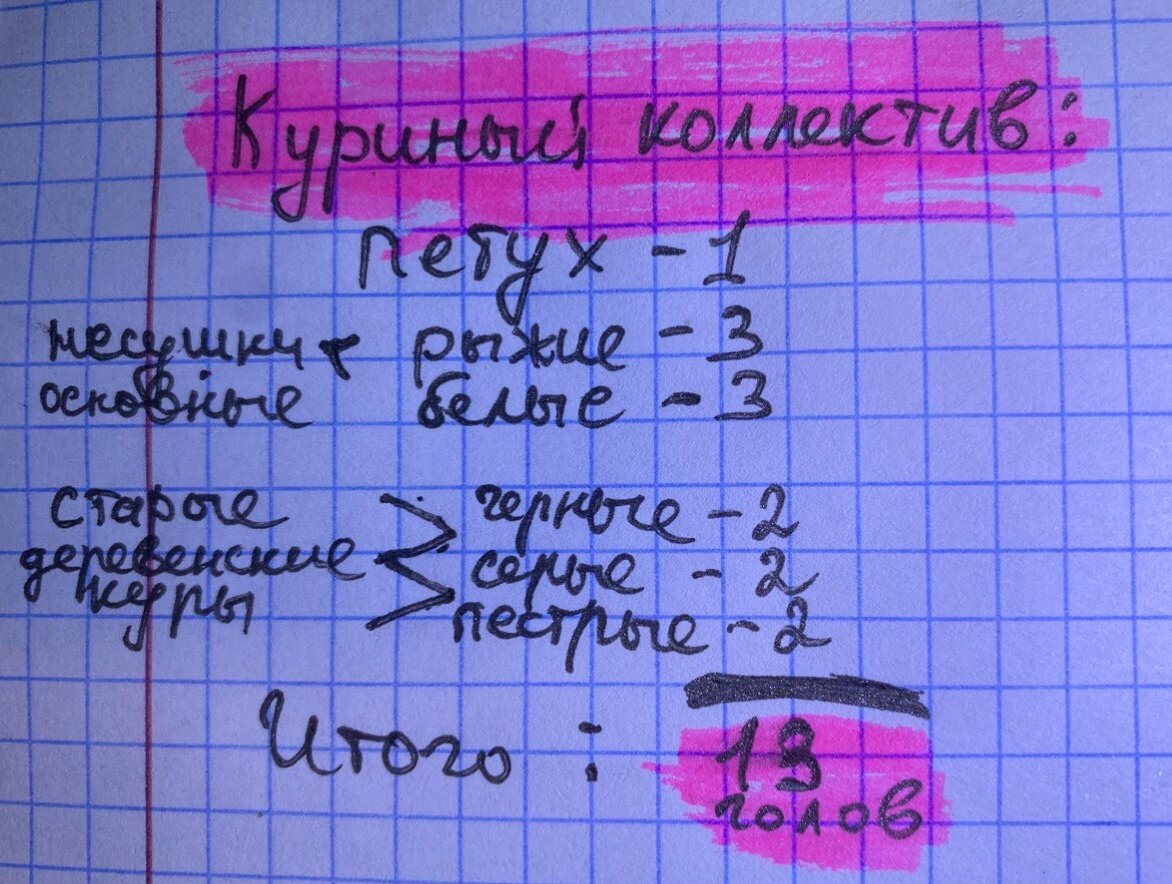 Куриный коллектив:
петух - 1
несушки рыжие - 3
основные белые - 3
старые черные - 2
деревенские серые - 2
куры пестрые - 2
Итого : 13
голов